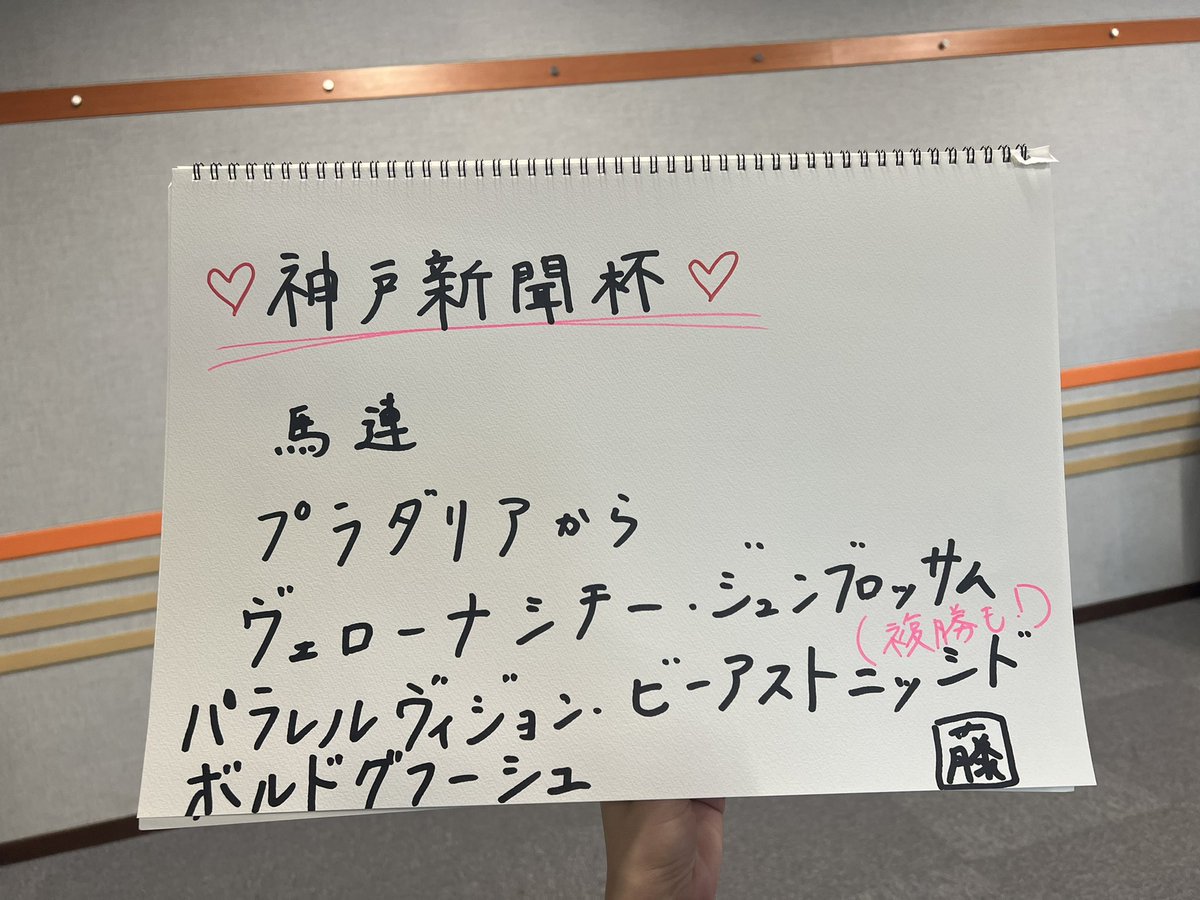 ♡神戸新聞杯♡
馬連
プラダリアから
ヴェローナシチー・ジュンブロッサム
(複勝も!)
パラレルヴィジョン・ビーアストニッシド
ボルドグフーシュ
藤